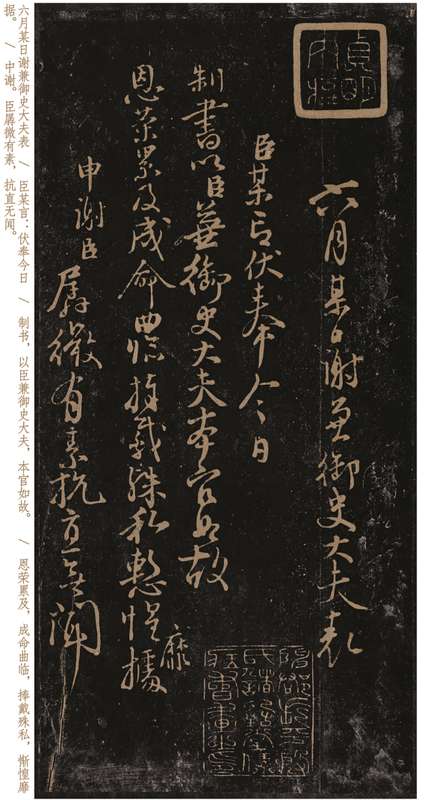 六月某日謝兼御史大夫表
臣某言伏奉今日
制書以臣兼御史大夫本官如故
恩荣累及成命曲临捧戴殊私慙惶靡據
中謝臣孱微有素抗直無聞
六月某日谢兼御史大夫表 / 臣某言：伏奉今日 / 制书，以臣兼御史大夫，本官如故。 / 恩荣累及，成命曲临，捧戴殊私，惭惶靡
据。 / 中谢。臣孱微有素，抗直无闻。